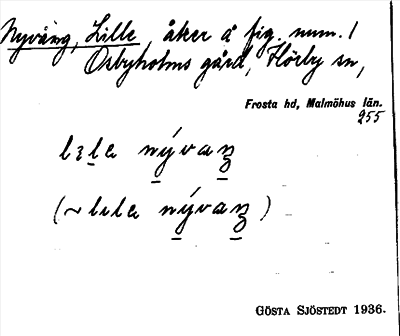 Nyvång, Lille, åker å fig. num. 1
Osbyholms gård, Hörby sn,
Frosta hd, Malmöhus län.
255
lɩlɐ nývaŋ
(~ lılɐ nývaŋ)
GÖSTA SJÖSTEDT 1936.